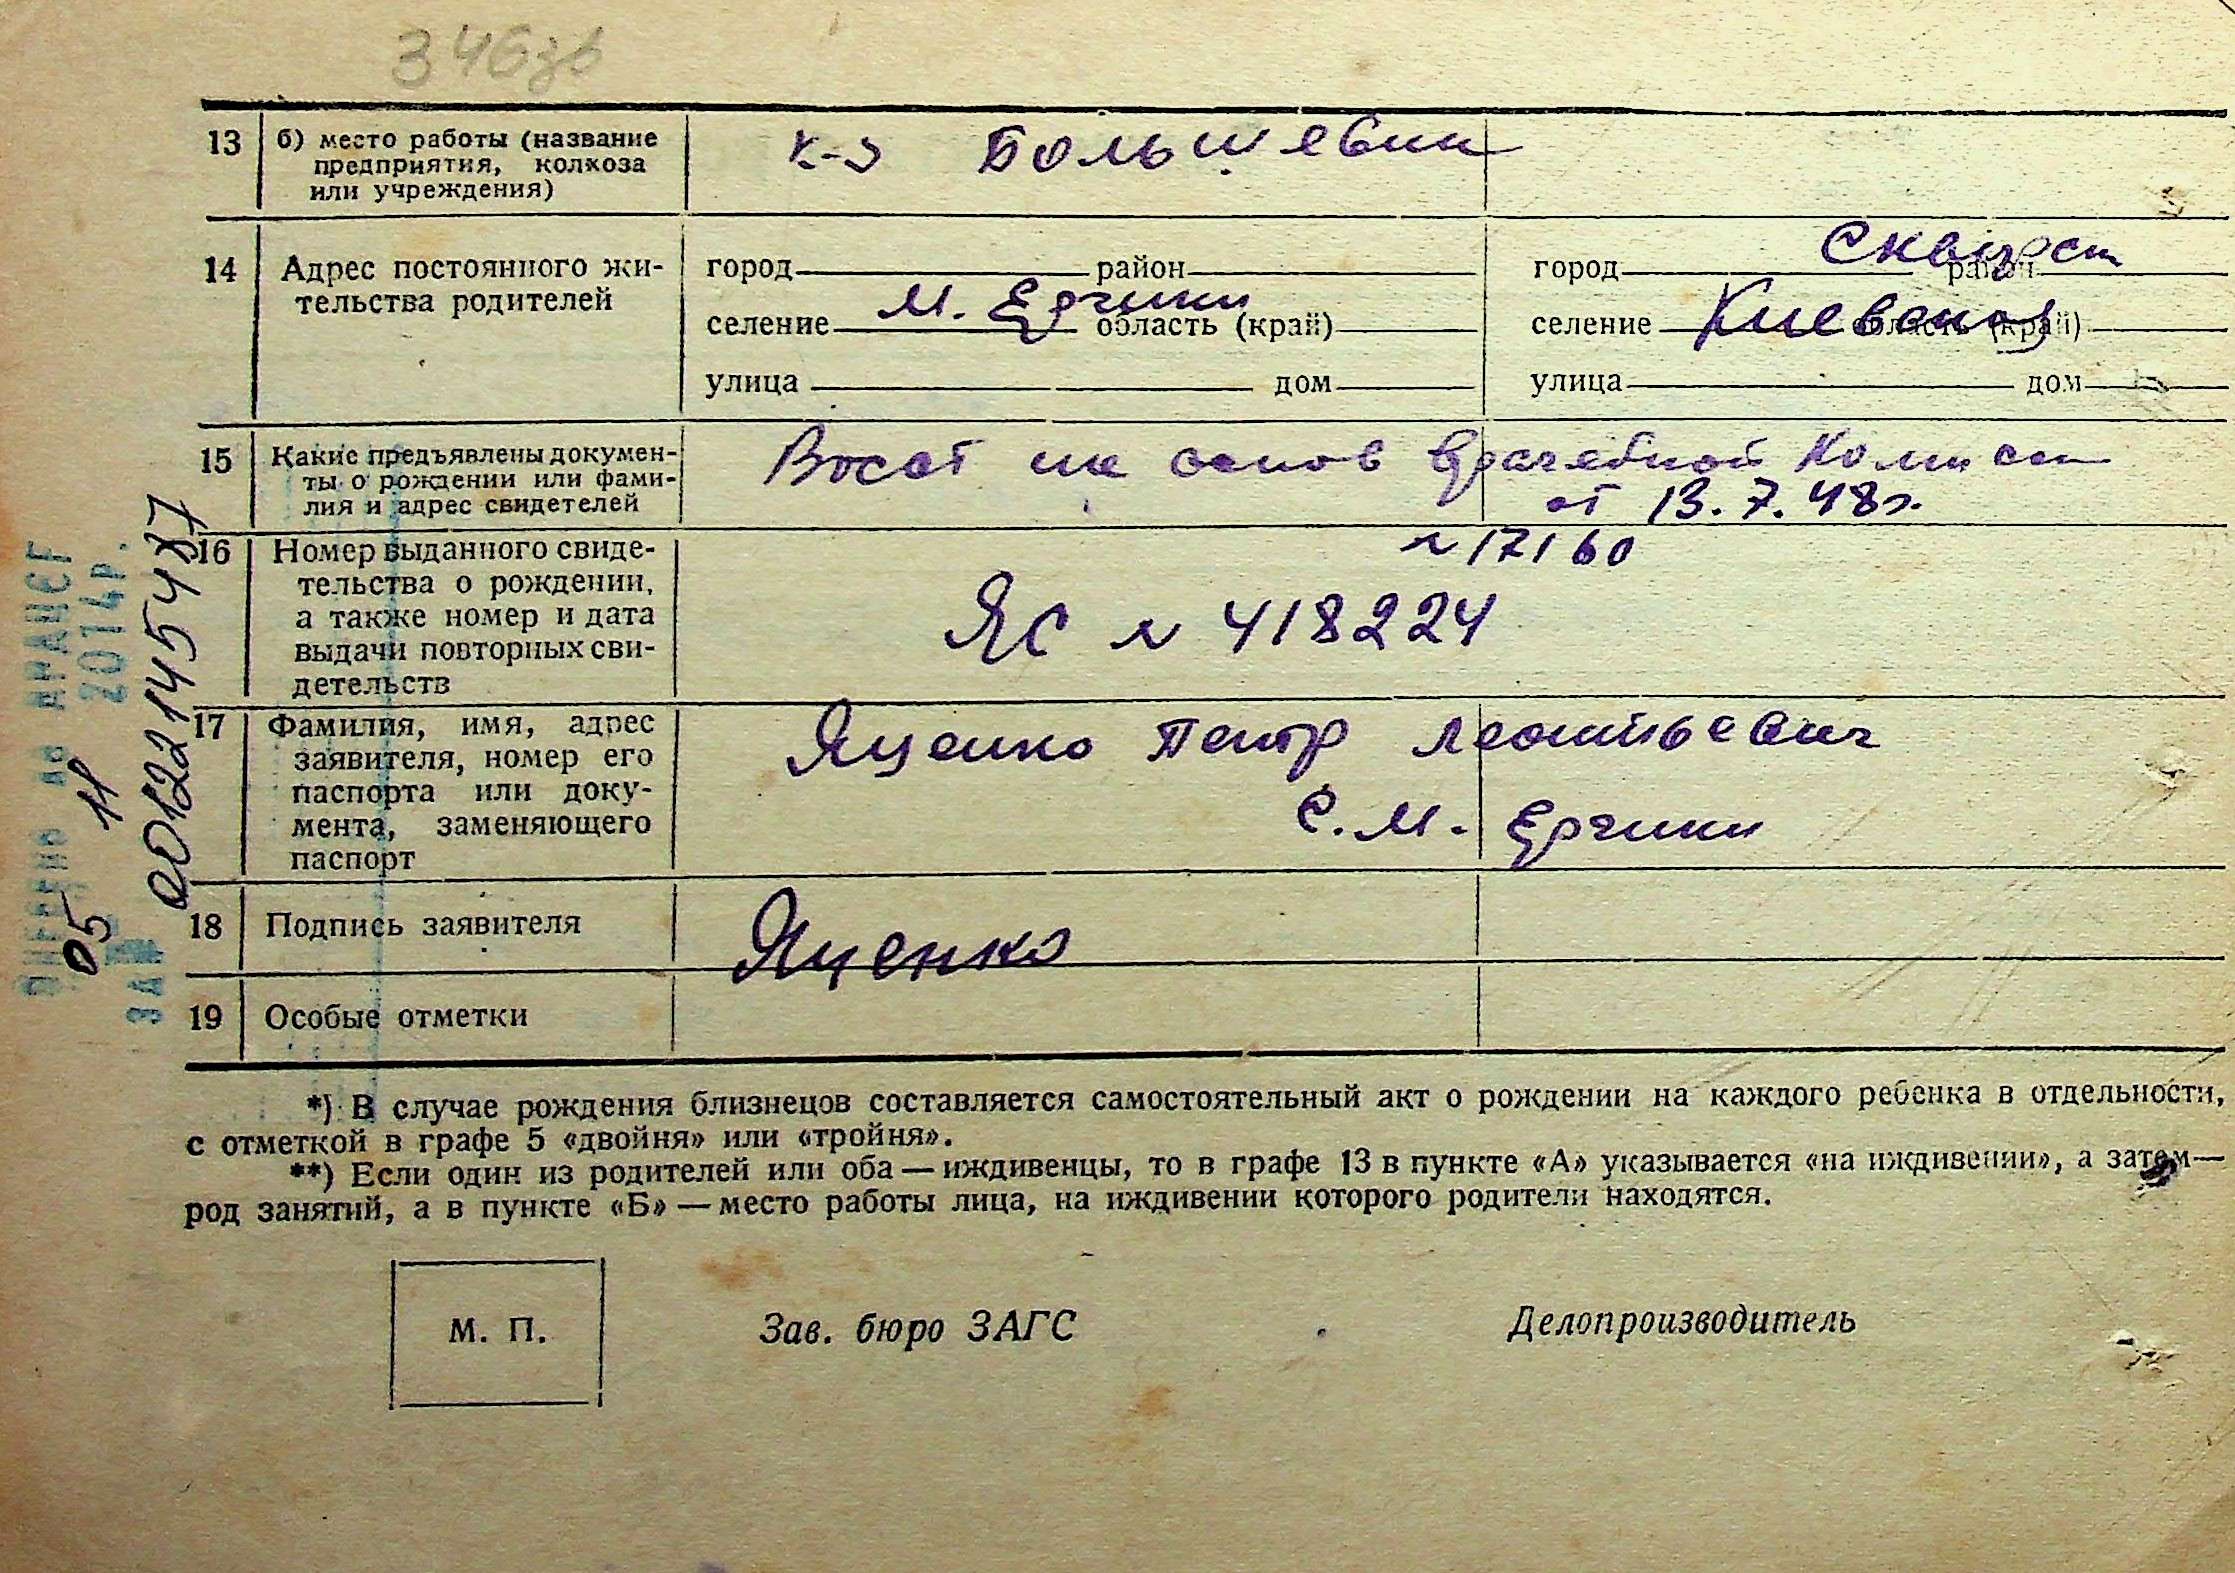 346зв
13 б) место работы (название
предприятия, колхоза
или учреждения)
к-з Большевик
14 Адрес постоянного жи-
тельства родителей
город район
селение М. Ерчики область (край)
улица дом
город Сквирск район
селение Киевской область (край)
улица дом
15 Какие предъявлены докумен-
ты о рождении или фами-
лия и адрес свидетелей
Восст на основ врачебной комисси
от 13.7.48г.
№ 17160
16 Номер выданного свиде-
тельства о рождении,
а также номер и дата
выдачи повторных сви-
детельств
ЯС № 418224
17 Фамилия, имя, адрес
заявителя, номер его
паспорта или доку-
мента, заменяющего
паспорт
Яценко Петр Леонтьевич
С. М. Ерчики
18 Подпись заявителя
Яценко
19 Особые отметки
*) В случае рождения близнецов составляется самостоятельный акт о рождении на каждого ребенка в отдельности,
с отметкой в графе 5 «двойня» или «тройня».
**) Если один из родителей или оба — иждивенцы, то в графе 13 в пункте «А» указывается «на иждивении», а затем —
род занятий, а в пункте «Б» — место работы лица, на иждивении которого родители находятся.
М. П.
Зав. бюро ЗАГС
Делопроизводитель
05 11
2014р.